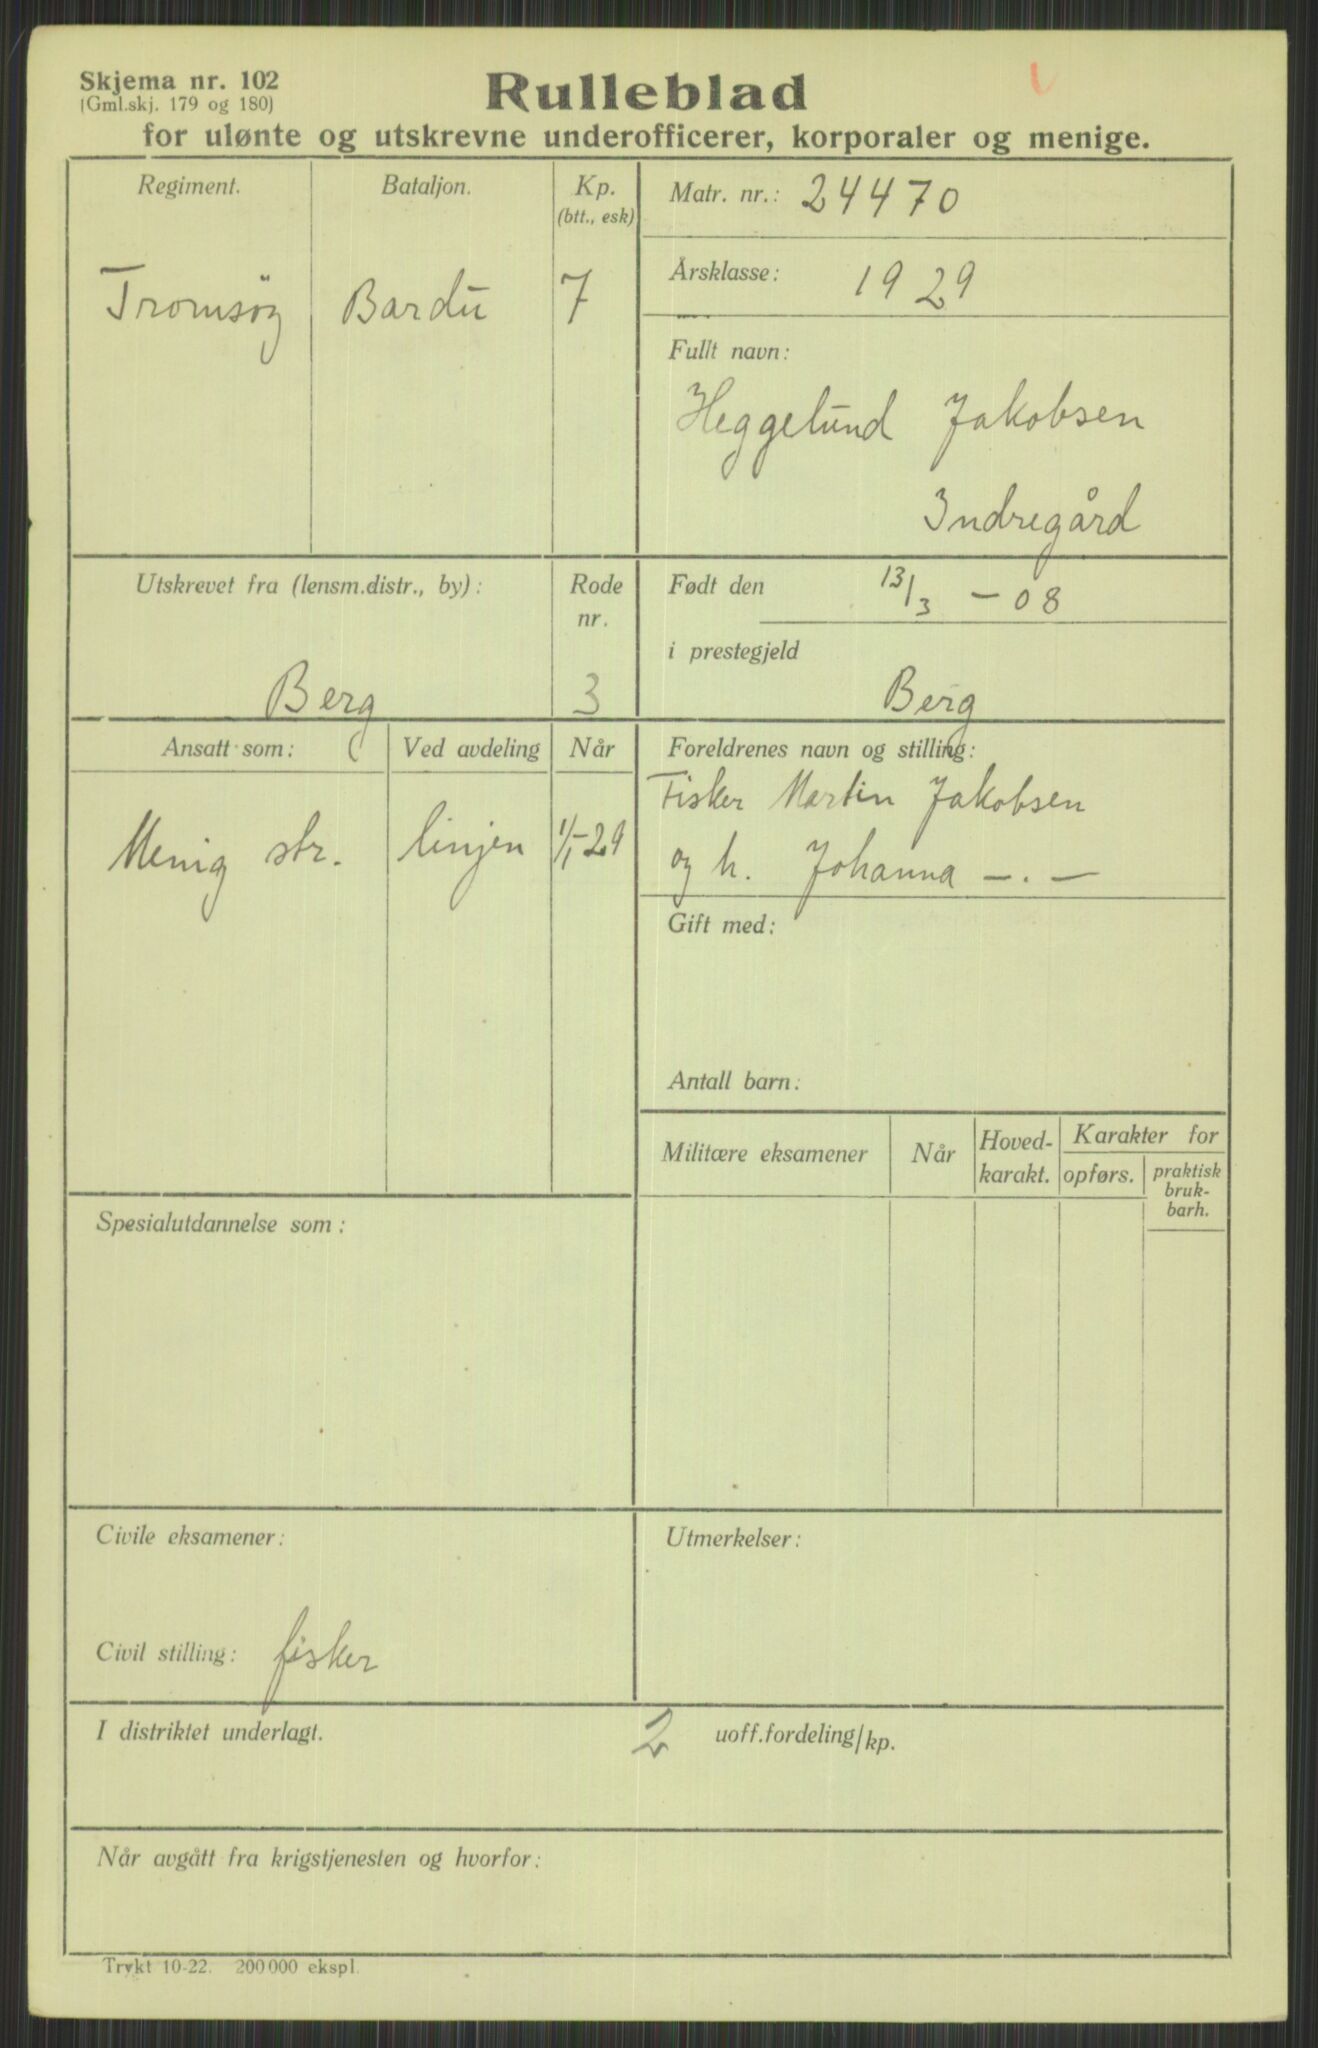 Skjema nr. 102
(Gml.skj. 179 og 180)
Rulleblad
for ulønte og utskrevne underofficerer, korporaler og menige.
Regiment.
Bataljon.
Kp.
(btt., esk)
Tromsøy
Bardu
7
Matr. nr.: 24470
Årsklasse: 1929
Fullt navn:
Heggelund Jakobsen
Indregård
Utskrevet fra (lensm.distr., by):
Berg
Rode
nr.
3
Født den 13/3 - 08
i prestegjeld
Berg
Ansatt som:
Ved avdeling
Når
Menig str.
linjen
1/1-29
Foreldrenes navn og stilling:
Fisker Martin Jakobsen
og h. Johanna -.-
Gift med:
Antall barn:
Militære eksamener
Når
Hoved-
karakt.
Karakter for
opførs.
praktisk
bruk-
barh.
Spesialutdannelse som:
Civile eksamener:
Civil stilling: fisker
Utmerkelser:
I distriktet underlagt.
2 uoff.fordeling/kp.
Når avgått fra krigstjenesten og hvorfor:
Trykt 10-22. 200000 ekspl.